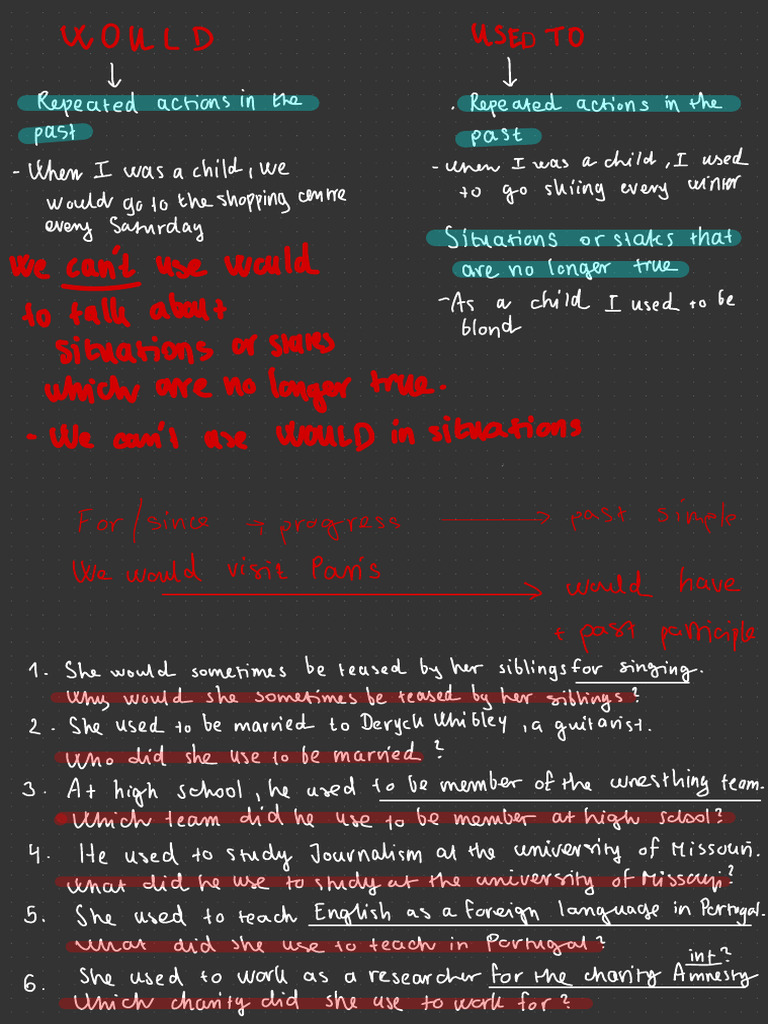 WOULD
Repeated actions in the
past
- When I was a child, we
would go to the shopping centre
every Saturday
We can't use would
to talk about
situations or states
which are no longer true.
- We can't use WOULD in situations
USED TO
. Repeated actions in the
past
- when I was a child, I used
to go skiing every winter
Situations or states that
are no longer true
- As a child I used to be
blond
For/since → progress → past simple
We would visit Paris → would have
+ past participle
1. She would sometimes be teased by her siblings for singing.
Why would she sometimes be teased by her siblings?
2. She used to be married to Deryck Whibley, a guitarist.
Who did she use to be married?
3. At high school, he used to be member of the wresthing team.
Which team did he use to be member at high school?
4. He used to study Journalism at the university of Missouri.
What did he use to study at the university of Missouri?
5. She used to teach English as a foreign language in Portugal.
What did she use to teach in Portugal?
int?
6. She used to work as a researcher for the charity Amnesty
Which charity did she use to work for?